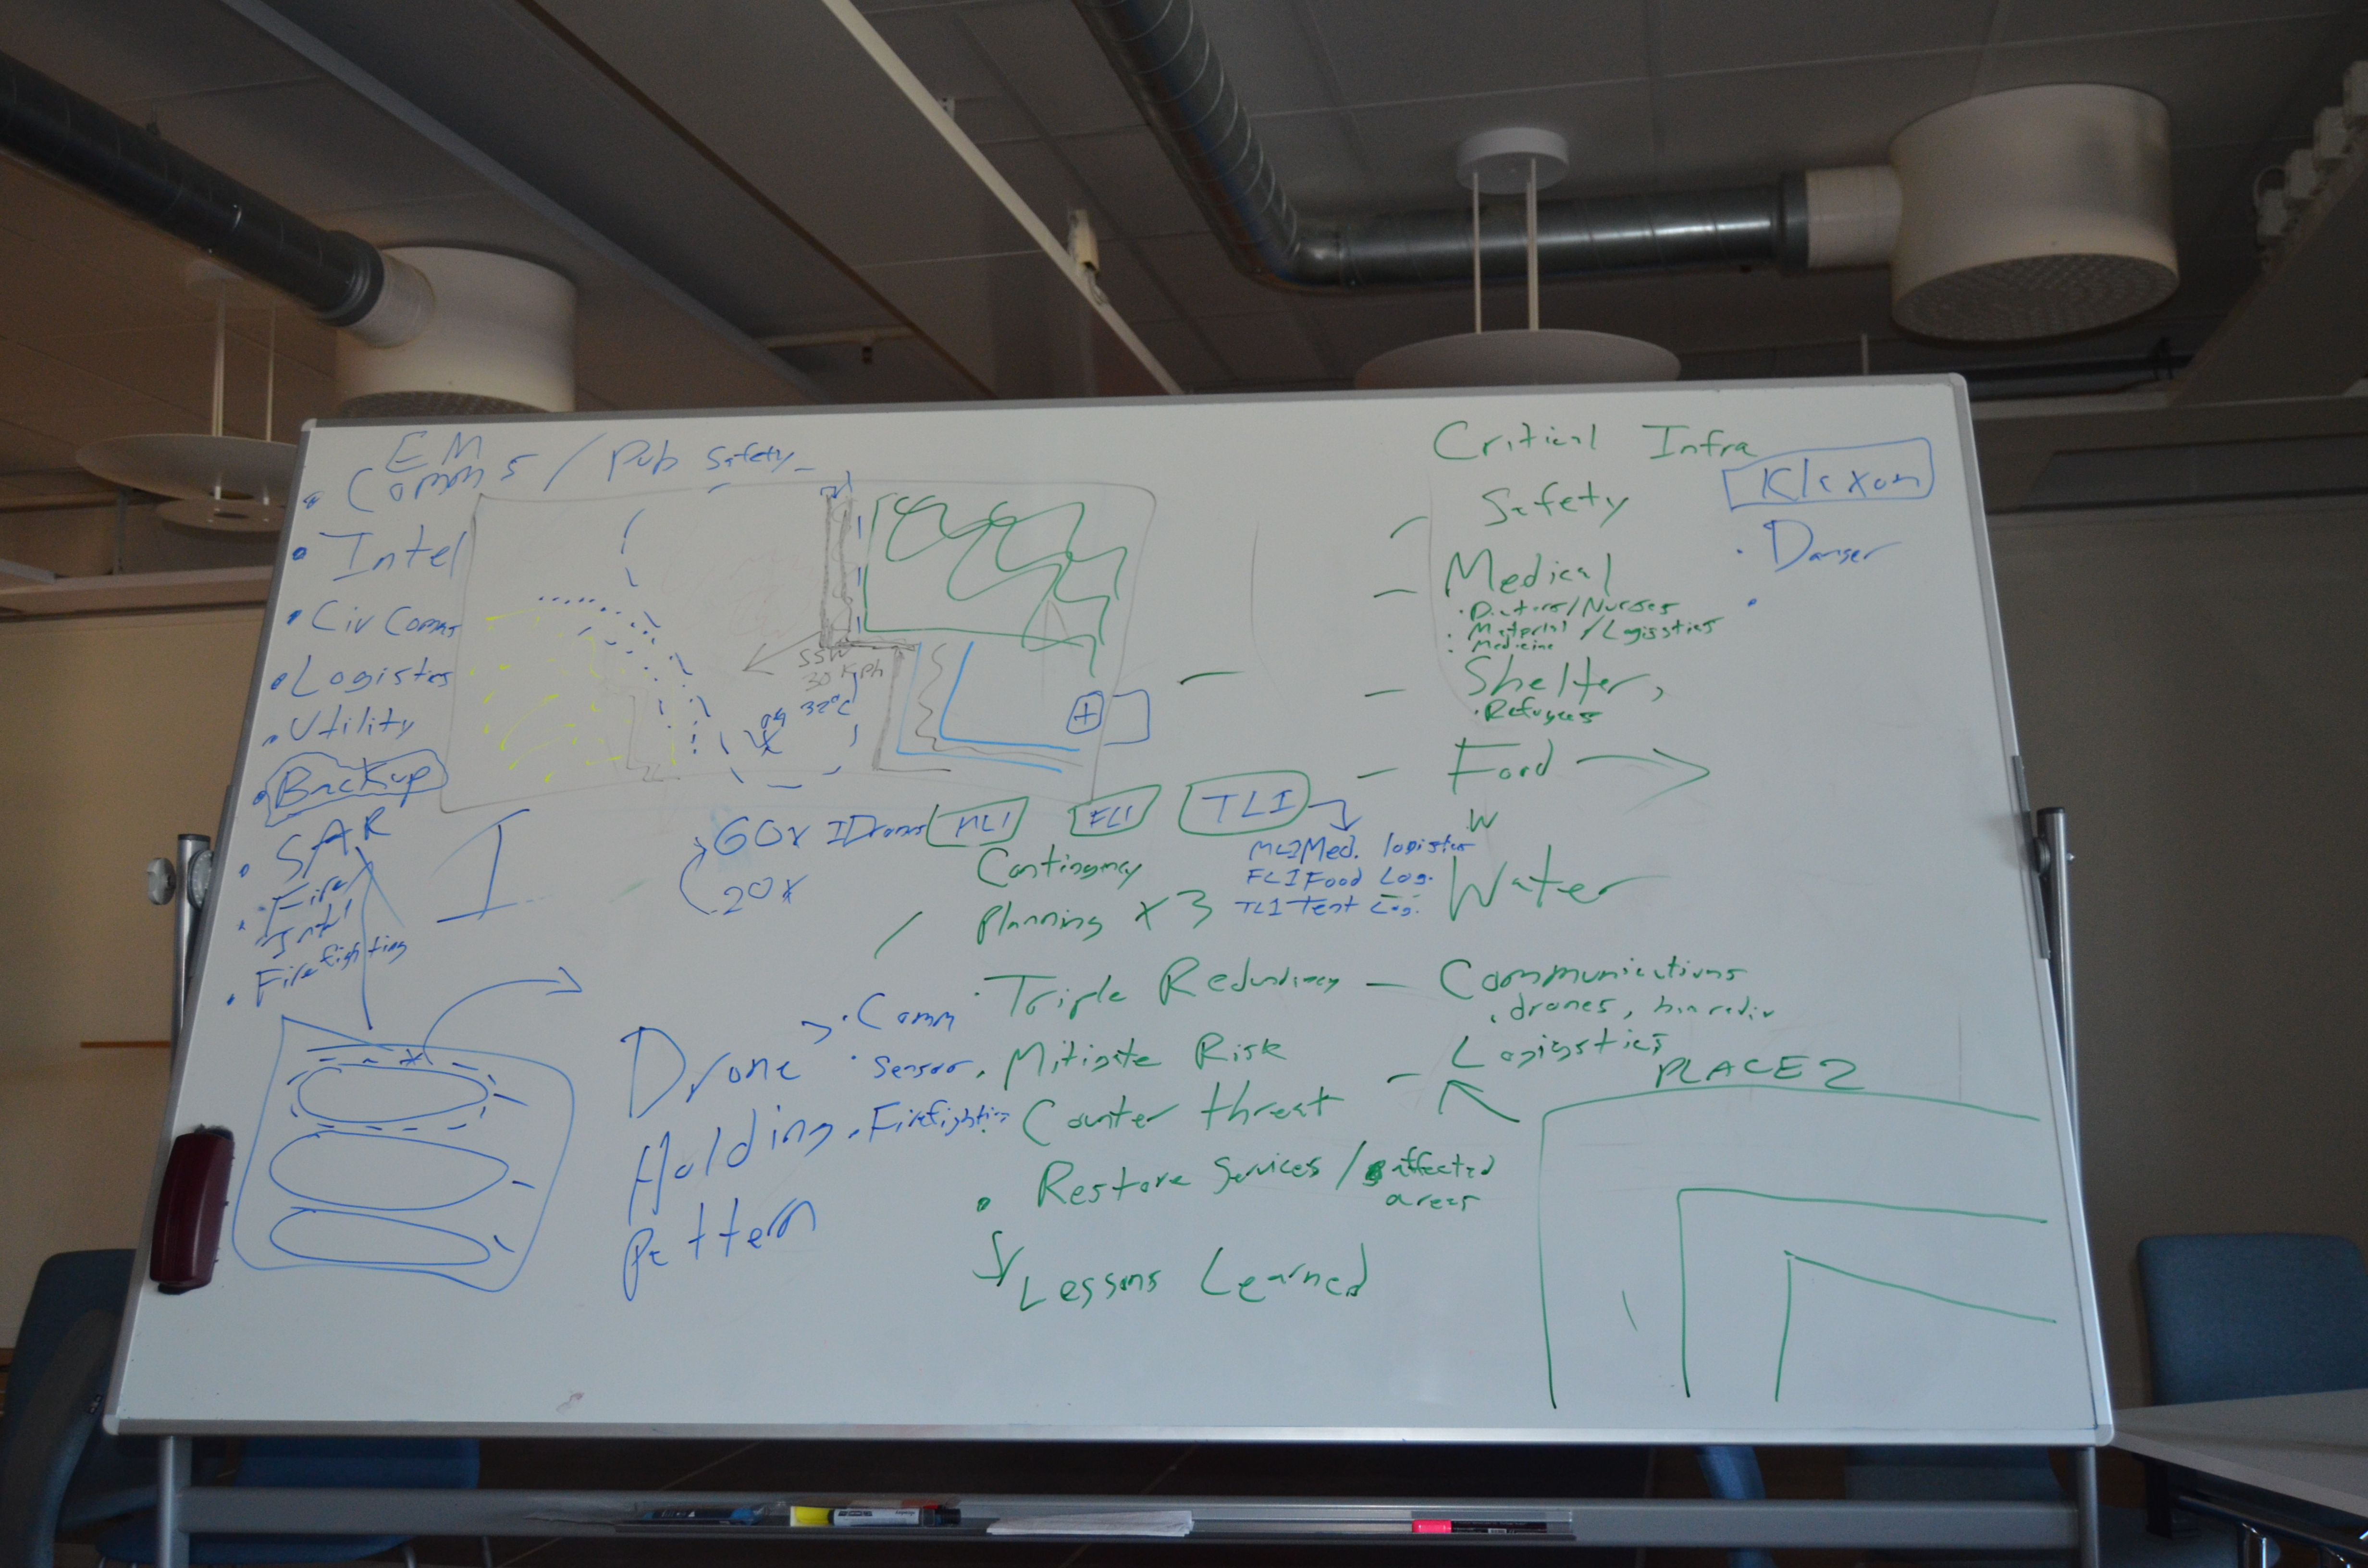 EM
• Comms / Pub Safety
• Intel
• Civ Comms
• Logistics
• Utility
• Backup
• SAR
• Fire
Firefighting
SSW
30 Kph
32°C
+
I
60x IDrones
20x
MLI
FLI
TLI
ML2 Med. logistics
FLI Food Log.
TLI Tent Log.
Contingency
Planning x 3
• Triple Redundancy
• Mitigate Risk
Counter threat
• Restore Services / affected
areas
Lessons Learned
Drone
Holding
Pattern
• Comm
• Sensor
• Firefighting
Critical Infra
– Safety
– Medical
• Doctors/Nurses
• Material / Logisstics
• Medicine
– Shelter,
• Refugees
– Food
W
Water
– Communications
• drones,
– Logigstics
PLACE 2
Klaxon
• Danger
•